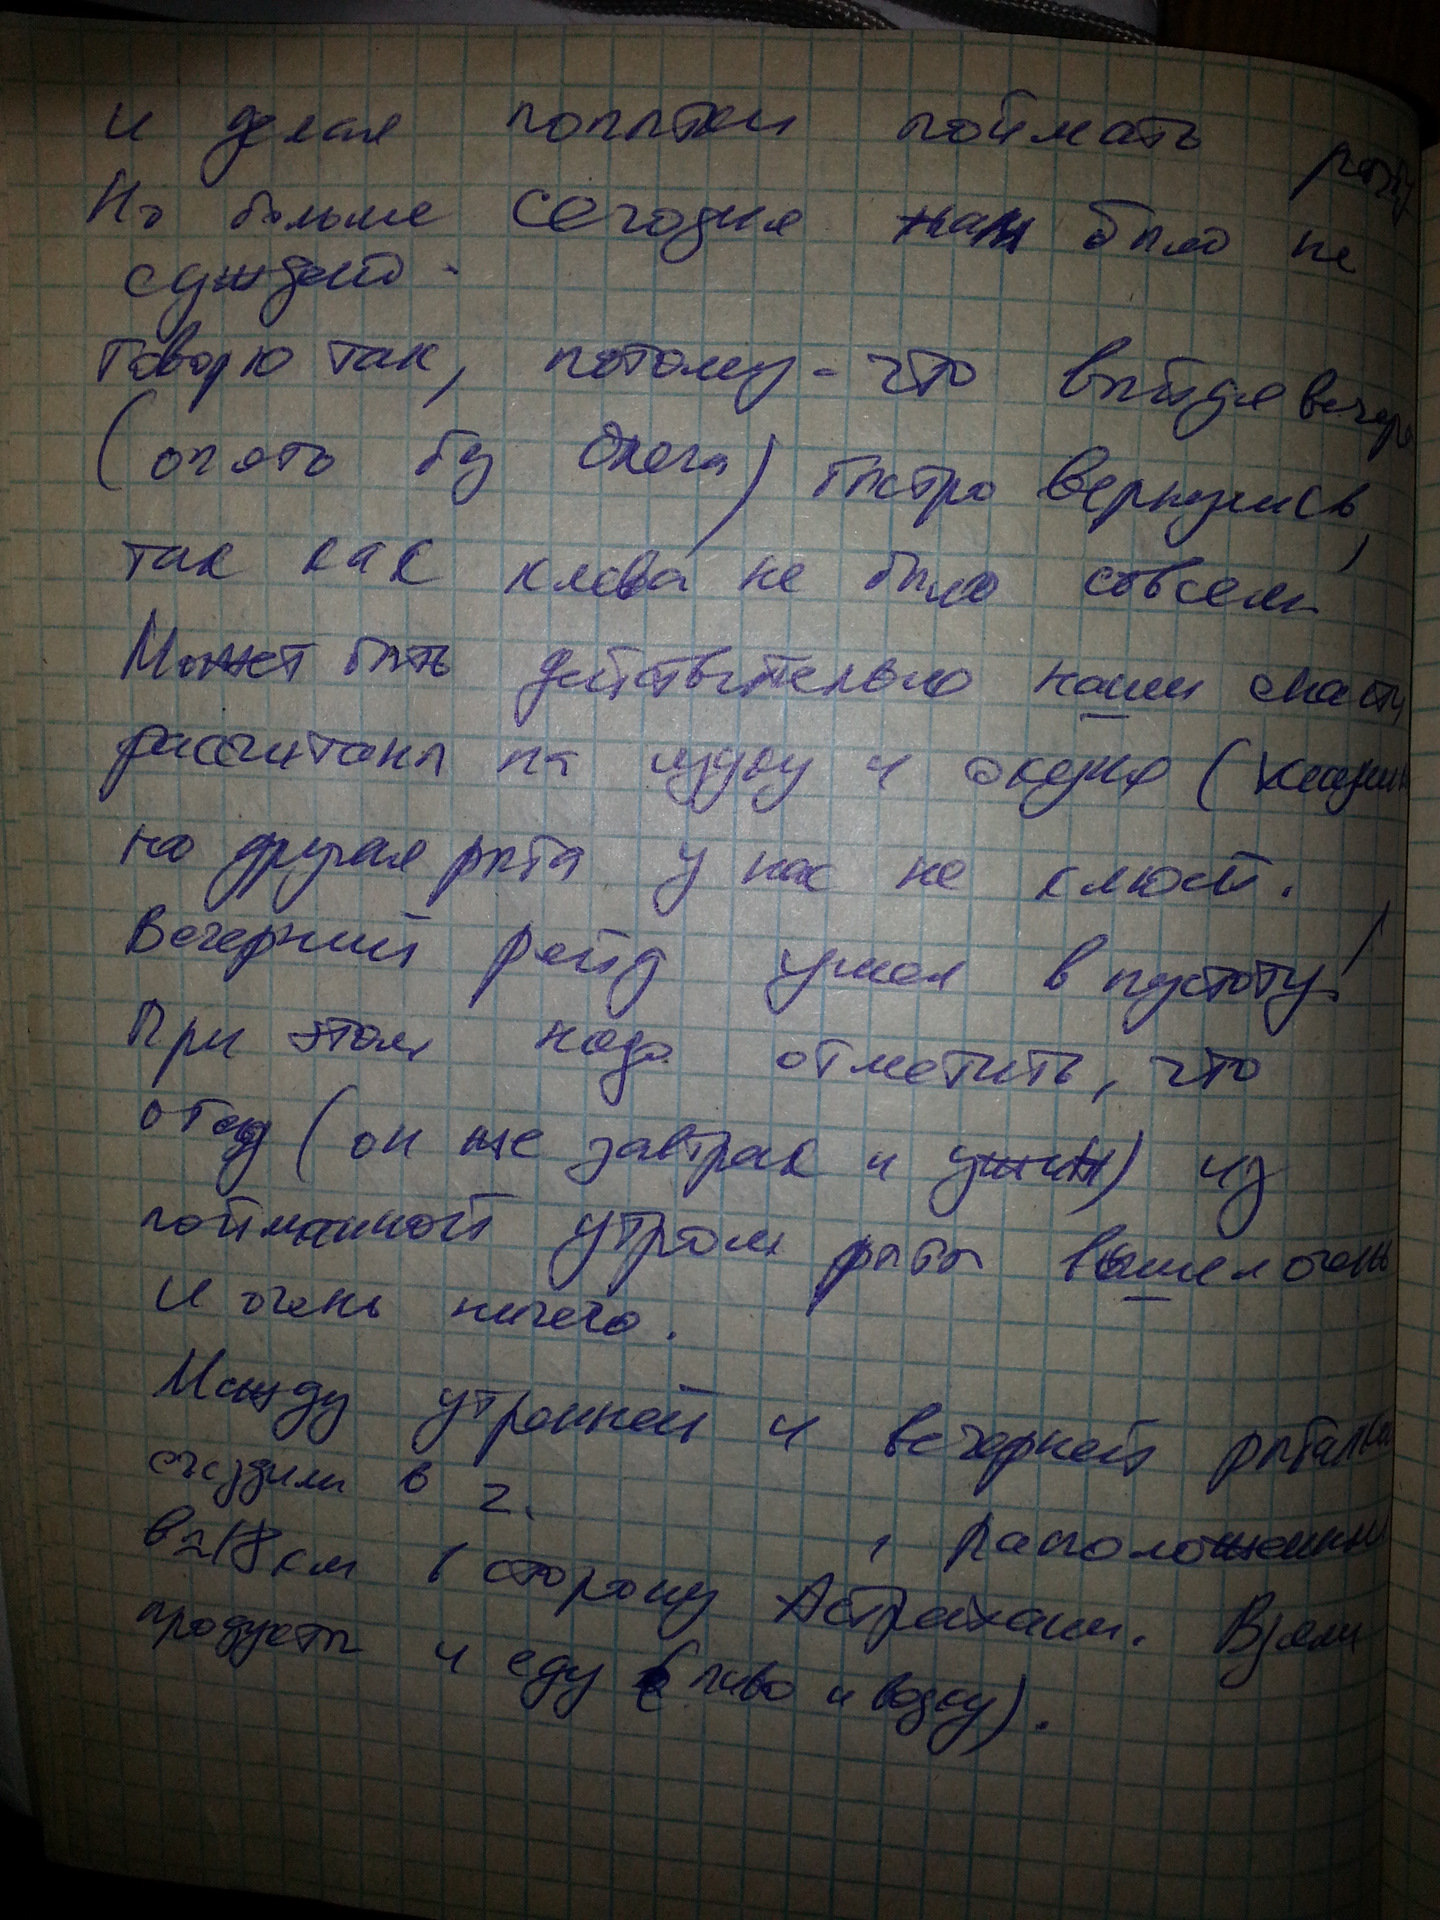 и делая попытки поймать рыбу
Но больше сегодня нам было не
суждено.
Говорю так, потому-что выйдя вечером
(опять без Олега) быстро вернулись,
так как клёва не было совсем
Может быть действительно наши снасти
рассчитаны на щуку и окуня
но другая рыба у нас не клюёт.
Вечерний рейд ушел в пустоту!
При этом надо отметить, что
обед (он же завтрак и ужин) из
пойманной утром рыбы вышел очень
и очень ничего.
Между утренней и вечерней рыбалкой
съездили в г.
, расположенный
в ≈18 км в сторону Астрахани. Взяли
продукты и еду (пиво и водку).